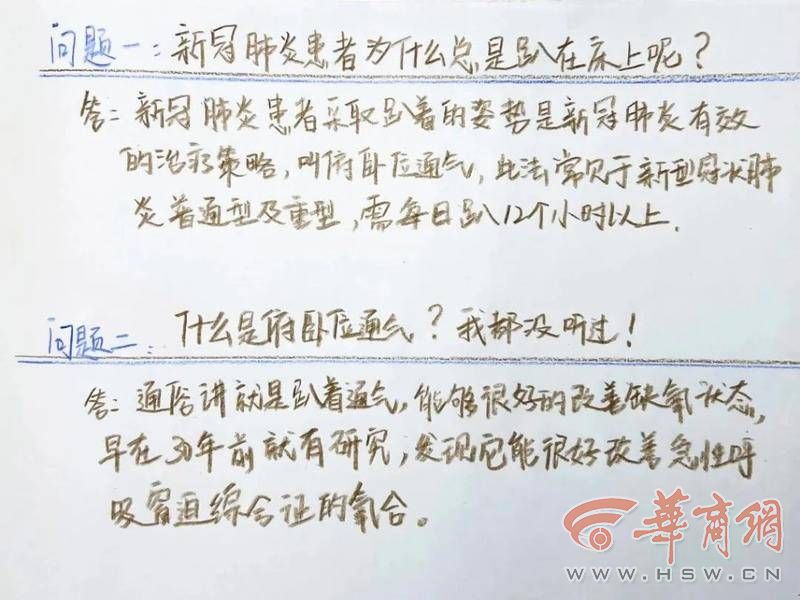 问题一：新冠肺炎患者为什么总是趴在床上呢？
答：新冠肺炎患者采取趴着的姿势是新冠肺炎有效
的治疗策略，叫俯卧位通气，此法常见于新型冠状肺
炎普通型及重型，需每日趴12个小时以上.
问题二：什么是俯卧位通气？我都没听过！
答：通俗讲就是趴着通气，能够很好的改善缺氧状态，
早在30年前就有研究，发现它能很好改善急性呼
吸窘迫综合证的氧合。
華商網
WWW.HSW.CN